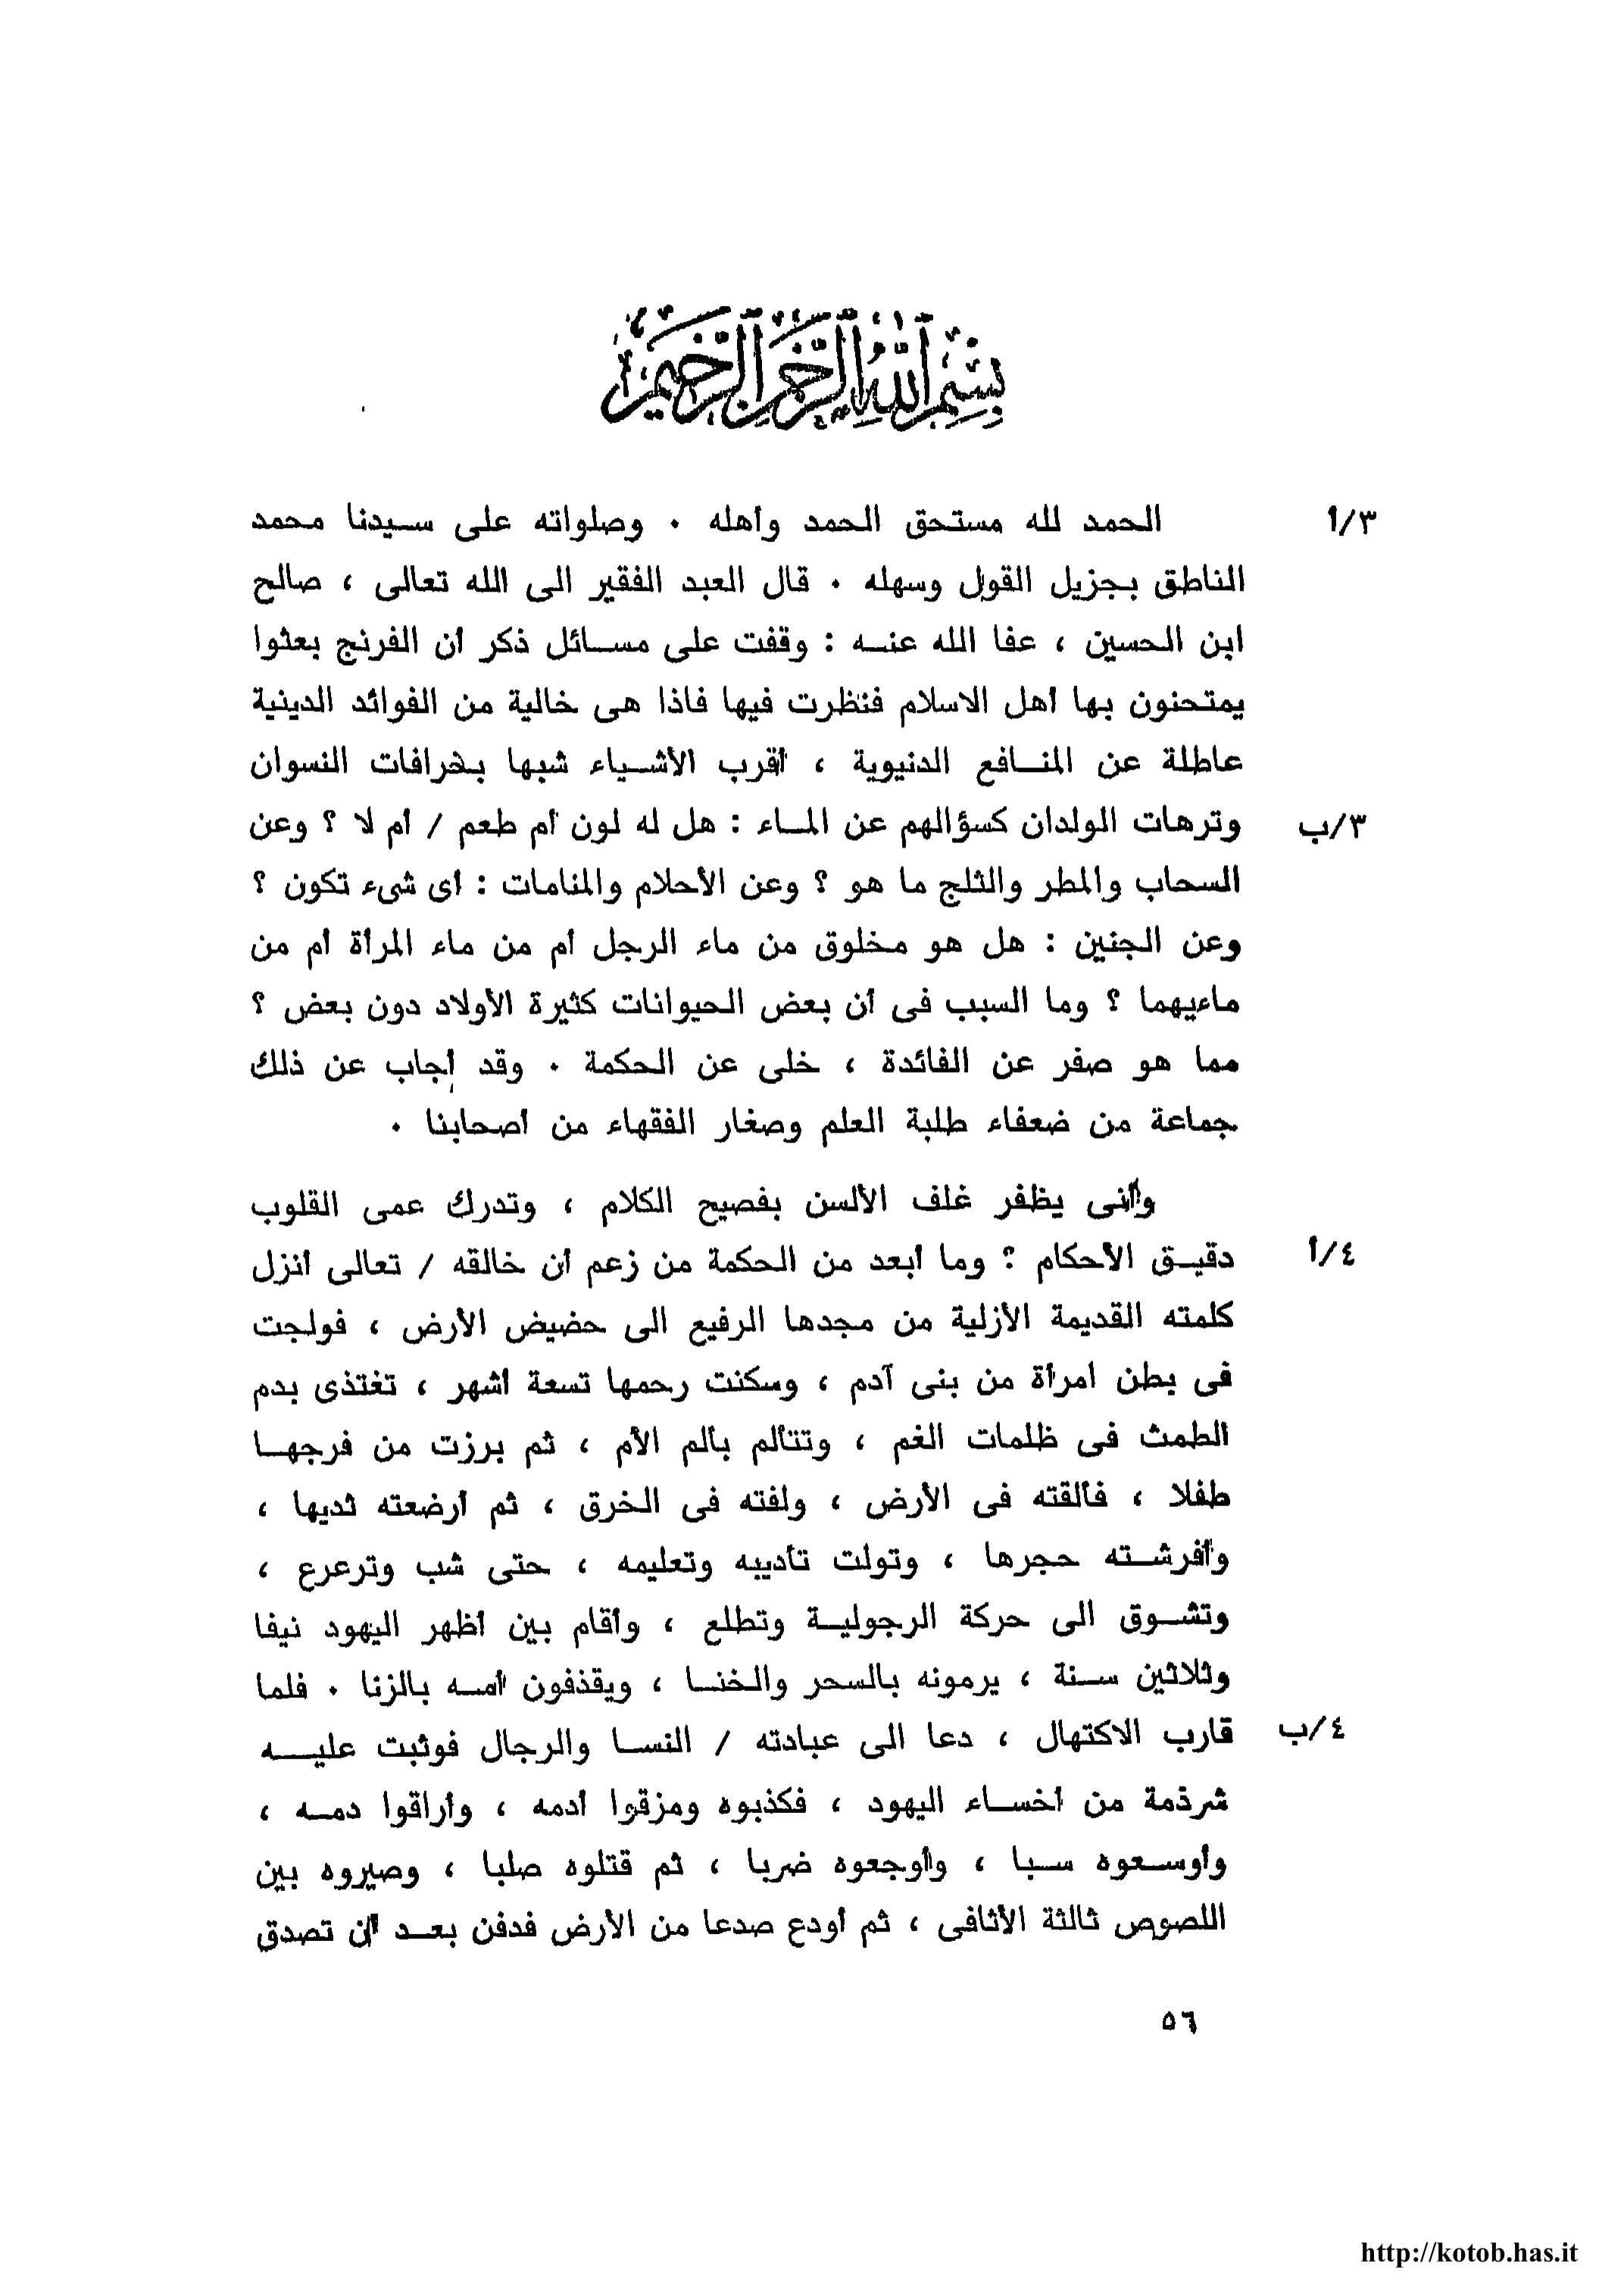 بسم الله الرحمن الرحيم
٣/أ الحمد لله مستحق الحمد وأهله . وصلواته على سيدنا محمد
الناطق بجزيل القول وسهله . قال العبد الفقير الى الله تعالى ، صالح
ابن الحسين ، عفا الله عنه : وقفت على مسائل ذكر أن الفرنج بعثوا
يمتحنون بها أهل الاسلام فنظرت فيها فاذا هى خالية من الفوائد الدينية
عاطلة عن المنافع الدنيوية ، أقرب الأشياء شبها بخرافات النسوان
٣/ب وترهات الولدان كسؤالهم عن الماء : هل له لون أم طعم / أم لا ؟ وعن
السحاب والمطر والثلج ما هو ؟ وعن الأحلام والمنامات : أى شىء تكون ؟
وعن الجنين : هل هو مخلوق من ماء الرجل أم من ماء المرأة أم من
ماءيهما ؟ وما السبب فى أن بعض الحيوانات كثيرة الأولاد دون بعض ؟
مما هو صفر عن الفائدة ، خلى عن الحكمة . وقد أجاب عن ذلك
جماعة من ضعفاء طلبة العلم وصغار الفقهاء من أصحابنا .
وأنى يظفر غلف الألسن بفصيح الكلام ، وتدرك عمى القلوب
٤/أ دقيق الأحكام ؟ وما أبعد من الحكمة من زعم أن خالقه / تعالى أنزل
كلمته القديمة الأزلية من مجدها الرفيع الى حضيض الأرض ، فولجت
فى بطن امرأة من بنى آدم ، وسكنت رحمها تسعة أشهر ، تغتذى بدم
الطمث فى ظلمات الغم ، وتتألم بألم الأم ، ثم برزت من فرجها
طفلا ، فألقته فى الأرض ، ولفته فى الخرق ، ثم أرضعته ثديها ،
وأفرشته حجرها ، وتولت تأديبه وتعليمه ، حتى شب وترعرع ،
وتشوق الى حركة الرجولية وتطلع ، وأقام بين أظهر اليهود نيفا
وثلاثين سنة ، يرمونه بالسحر والخنا ، ويقذفون أمه بالزنا . فلما
٤/ب قارب الاكتهال ، دعا الى عبادته / النسا والرجال فوثبت عليه
شرذمة من أخساء اليهود ، فكذبوه ومزقوا أدمه ، وأراقوا دمه ،
وأوسعوه سبا ، وأوجعوه ضربا ، ثم قتلوه صلبا ، وصيروه بين
اللصوص ثالثة الأثافى ، ثم أودع صدعا من الأرض فدفن بعد أن تصدق
٥٦
http://kotob.has.it